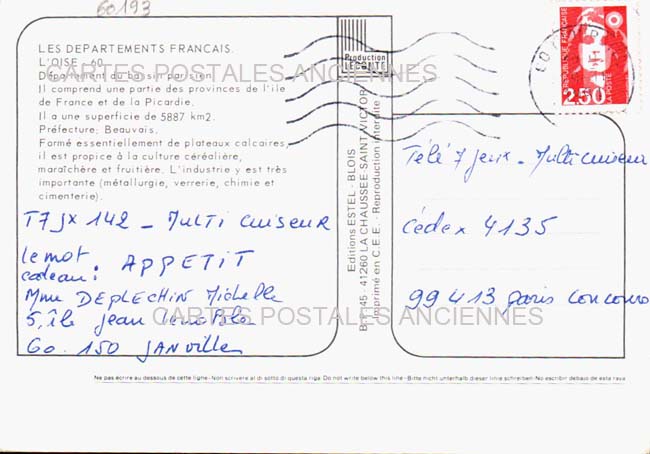 60193
LES DEPARTEMENTS FRANCAIS.
L'OISE - 60
Département du bassin parisien.
Il comprend une partie des provinces de l'île
de France et de la Picardie.
Il a une superficie de 5887 km2.
Préfecture: Beauvais.
Formé essentiellement de plateaux calcaires,
il est propice à la culture céréalière,
maraîchère et fruitière. L'industrie y est très
importante (métallurgie, verrerie, chimie et
cimenterie).
T7JX 142 - MULTI CUISEUR
le mot
cadeau: APPETIT
Mme DEPLECHIN Michelle
5, île Jean
60.150 JANVILLE
Production
LECONTE
Editions ESTEL - BLOIS
B.P. 45 - 41260 LA CHAUSSEE-SAINT-VICTOR
Imprimé en C.E.E. - Reproduction interdite
REPUBLIQUE FRANÇAISE
LA POSTE
2,50
Télé 7 Jeux - Multicuiseur
Cédex 4135
99413 Paris Concours
CARTES POSTALES ANCIENNES
CARTES POSTALES ANCIENNES
Ne pas écrire au dessous de cette ligne - Non scrivere al di sotto di questa riga. Do not write below this line - Bitte nicht unterhalb dieser linie schreiben - No escribir debajo de esta raya